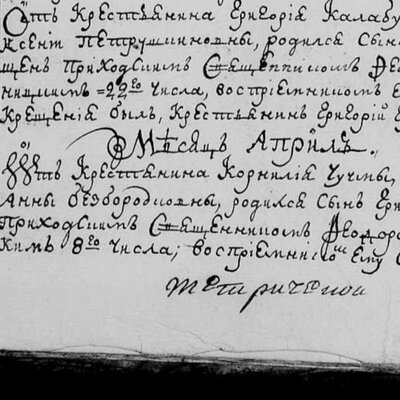 Отъ Крестьянина Григорія Калабу
Ксеніи Петрушиновны, родился Сынъ
щенъ приходскимъ Священникомъ Ѳео
22го Числа, воспріемникомъ Е
Крещенія былъ, Крестьянинъ Григорій
Мѣсяцъ Априль.
Отъ Крестьянина Корнилія Чучмы,
Анны Безбородковны, родился Сынъ Гри
приходскимъ Священникомъ Ѳеодоро
кимъ 8го Числа; воспріемникомъ Ему